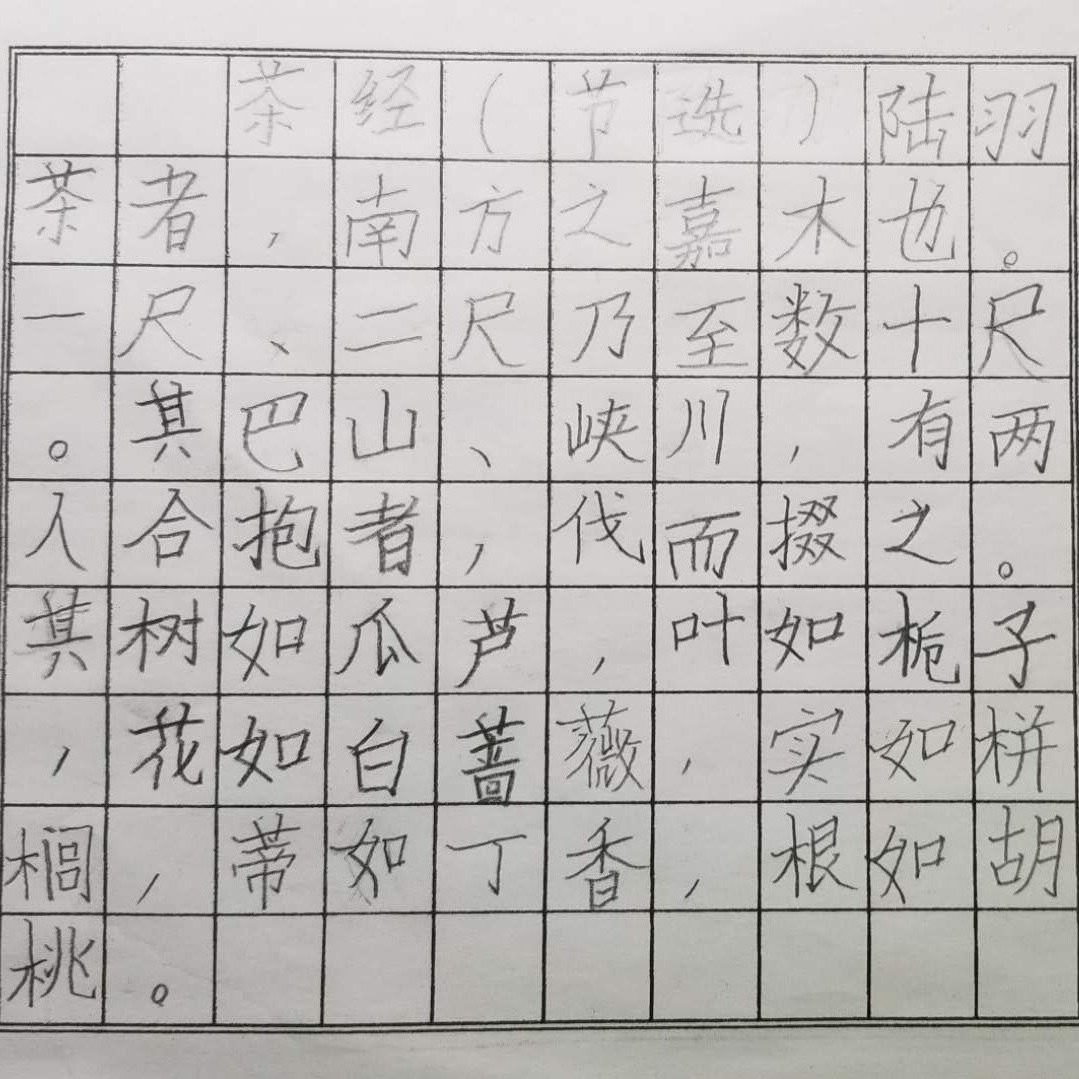 茶经(节选)陆羽
茶者,南方之嘉木也。
一尺、二尺乃至数十尺
。其巴山、峡川,有两
人合抱者,伐而掇之。
其树如瓜芦,叶如栀子
,花如白蔷薇,实如栟
榈,蒂如丁香,根如胡
桃。